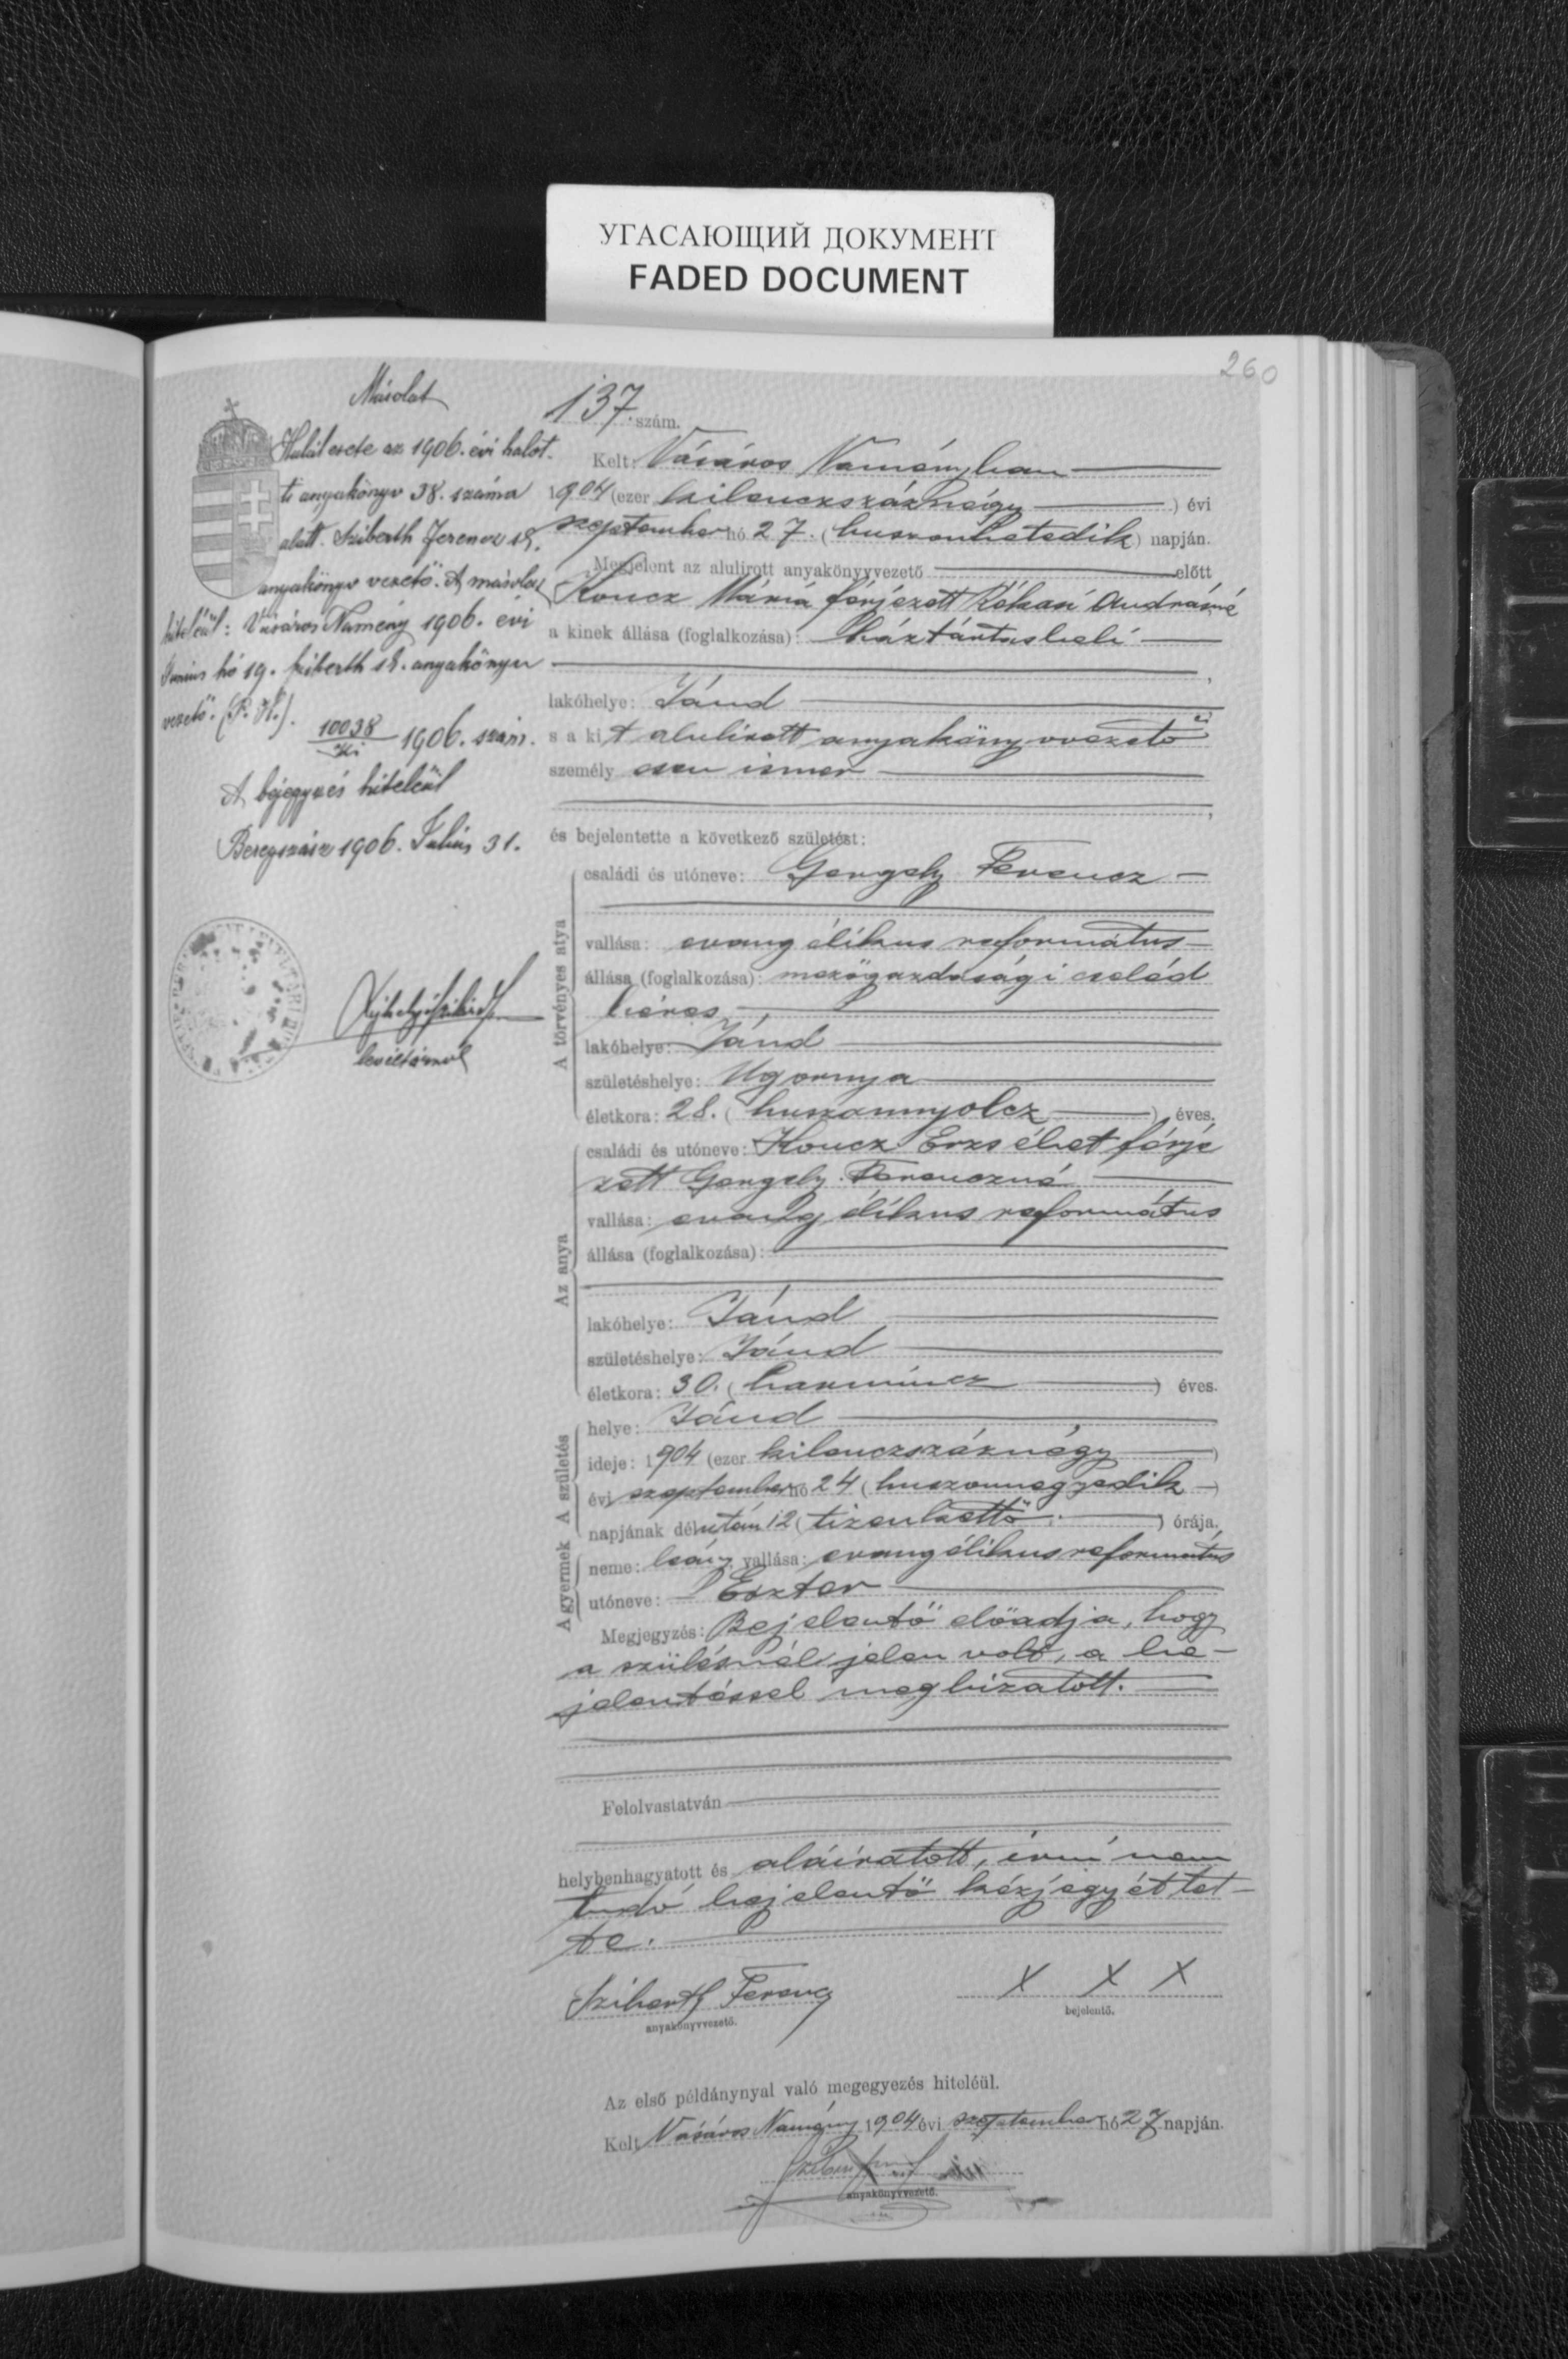 УГАСАЮЩИЙ ДОКУМЕНТ
FADED DOCUMENT
260
Másolat
Halálesete az 1906. évi halot-
ti anyakönyv 38. száma
alatt. Sziberth Ferencz s.k.
anyakönyv vezető. A másolat
hiteléül: Vásáros Namény 1906. évi
Junius hó 19. Sziberth s.k. anyakönyv
vezető. (P. H.).
10038/ki 1906. szám.
A bejegyzés hiteléül
Beregszász 1906. Julius 31.
levéltárnok
137. szám.
Kelt: Vásáros Naményban
1904 (ezer kilenczszáznégy) évi
szeptember hó 27. (huszonhetedik) napján.
Megjelent az alulirott anyakönyvvezető előtt
Koncz Mária férjezett Rákasi Andrásné
a kinek állása (foglalkozása): háztártásbeli
lakóhelye: Jánd
s a kit alulirott anyakönyvvezető
személy esen ismer
és bejelentette a következő születést:
A törvényes atya
családi és utóneve: Gergely Ferencz
vallása: evangélikus református
állása (foglalkozása): mezőgazdasági cseléd
béres
lakóhelye: Jánd
születéshelye: Ugornya
életkora: 28. (huszonnyolcz) éves.
Az anya
családi és utóneve: Koncz Erzsébet férje
zett Gergely Ferenczné
vallása: evangélikus református
állása (foglalkozása):
lakóhelye: Jánd
születéshelye: Jánd
életkora: 30. (harmincz) éves.
A születés
helye: Jánd
ideje: 1904 (ezer kilenczszáznégy)
évi szeptember hó 24 (huszonnegyedik)
napjának délután 12 (tizenkettő) órája.
A gyermek
neme: leány vallása: evangélikus református
utóneve: Eszter
Megjegyzés: Bejelentő előadja, hogy
a szülésnél jelen volt, a be-
jelentéssel megbizatott.
Felolvastatván
helybenhagyatott és aláiratott, irni nem
tudó bejelentő kézjegyét tet-
te.
Sziberth Ferencz
anyakönyvvezető.
X X X
bejelentő.
Az első példánynyal való megegyezés hiteléül.
Kelt Vásáros Namény 1904 évi szeptember hó 27 napján.
anyakönyvvezető.